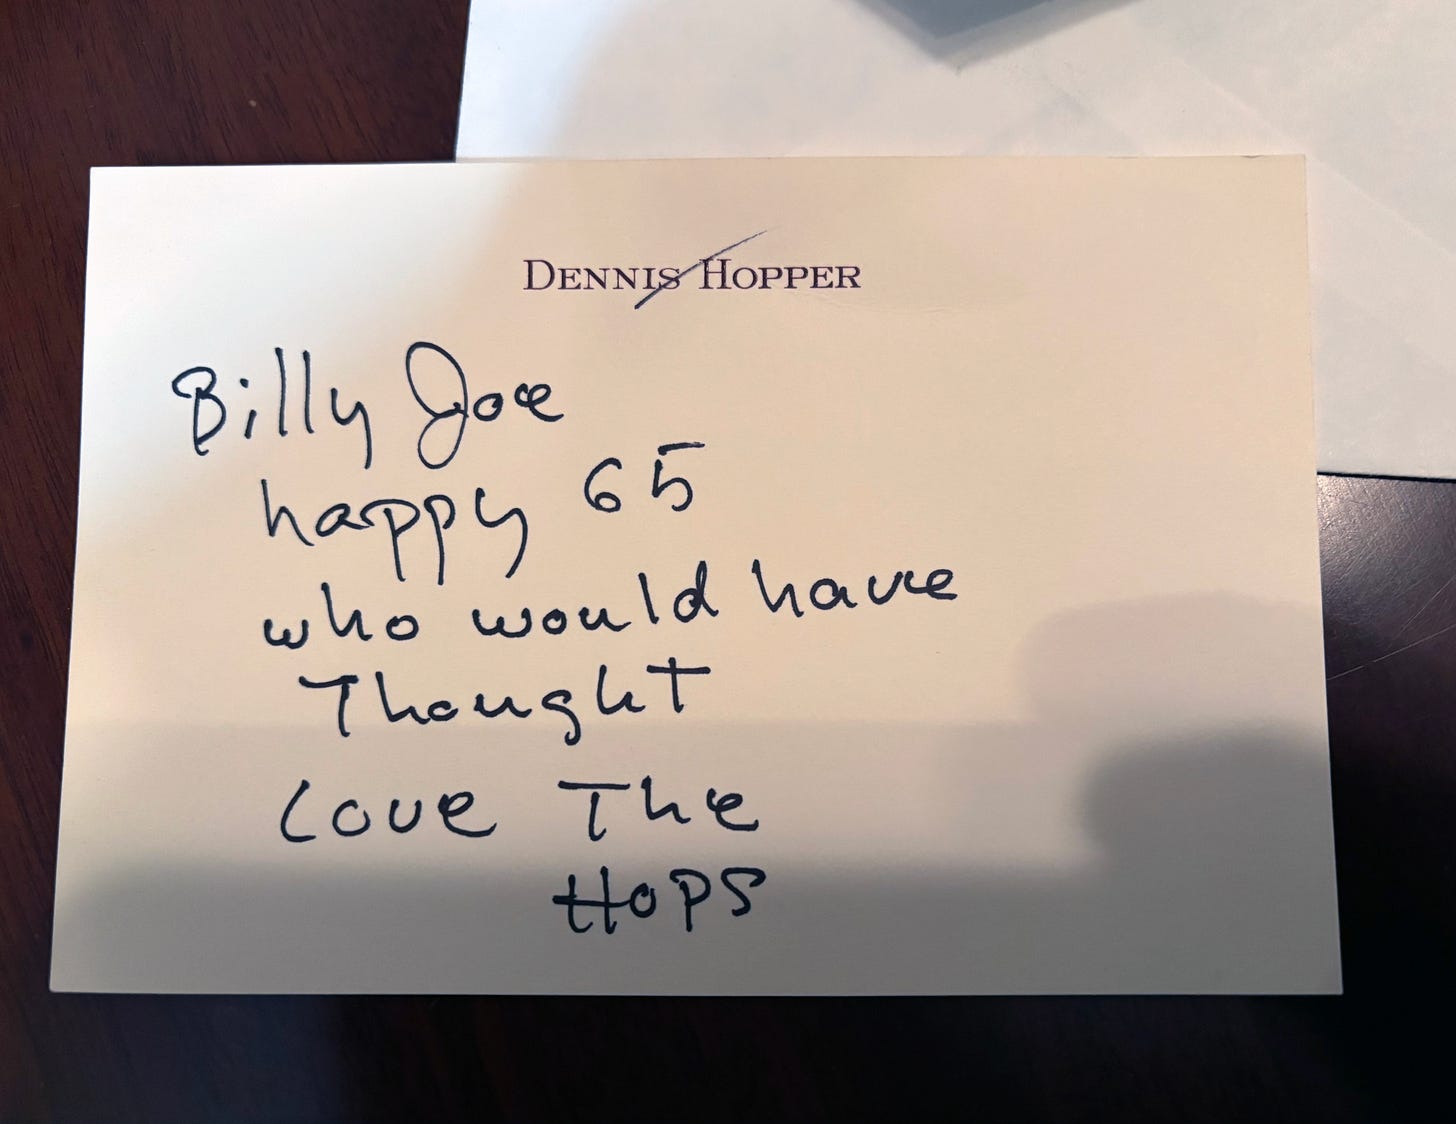 DENNIS HOPPER
Billy Joe
happy 65
who would have
Thought
Love The
Hops